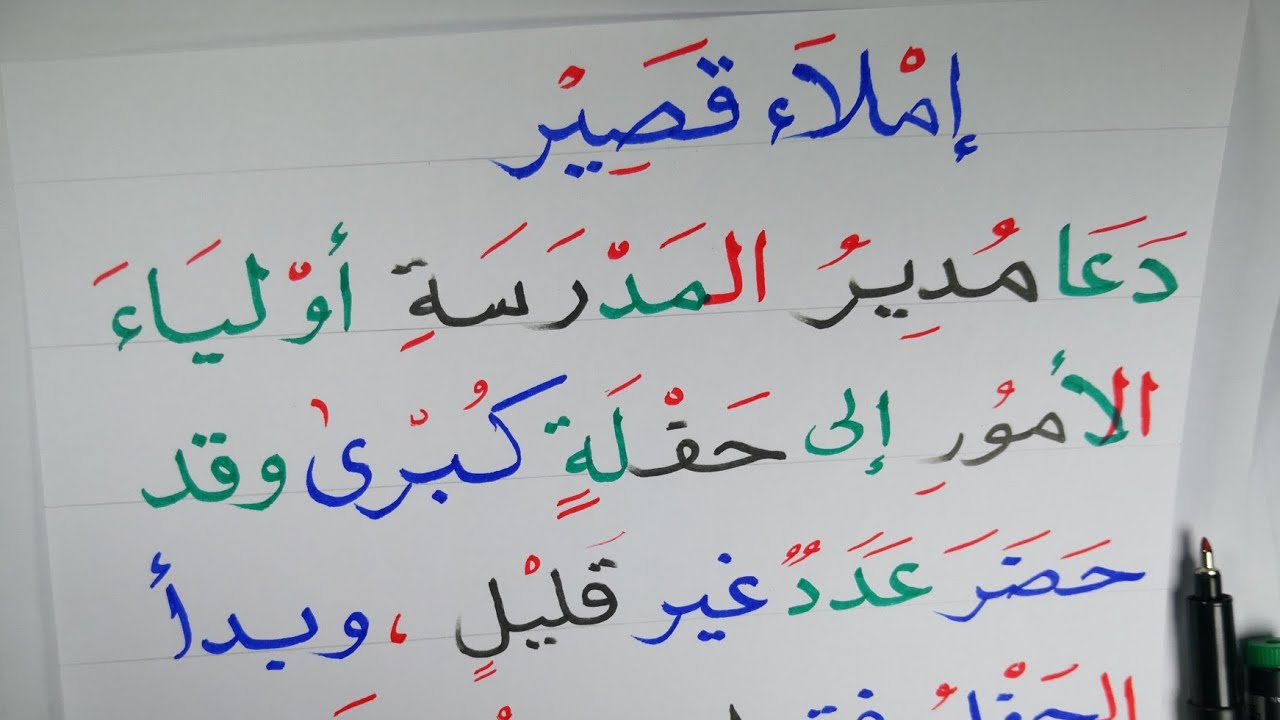 إمْلَاَء قَصِيْر
دَعَا مُدِيِرُ المَدْرَسَةِ أوْليَاءَ
الأمُورِ إلى حَفْلَةٍ كُبْرىٰ وقد
حَضَرَ عَدَدٌ غير قَليْلٍ ، وبدأ
الحَفْلُ